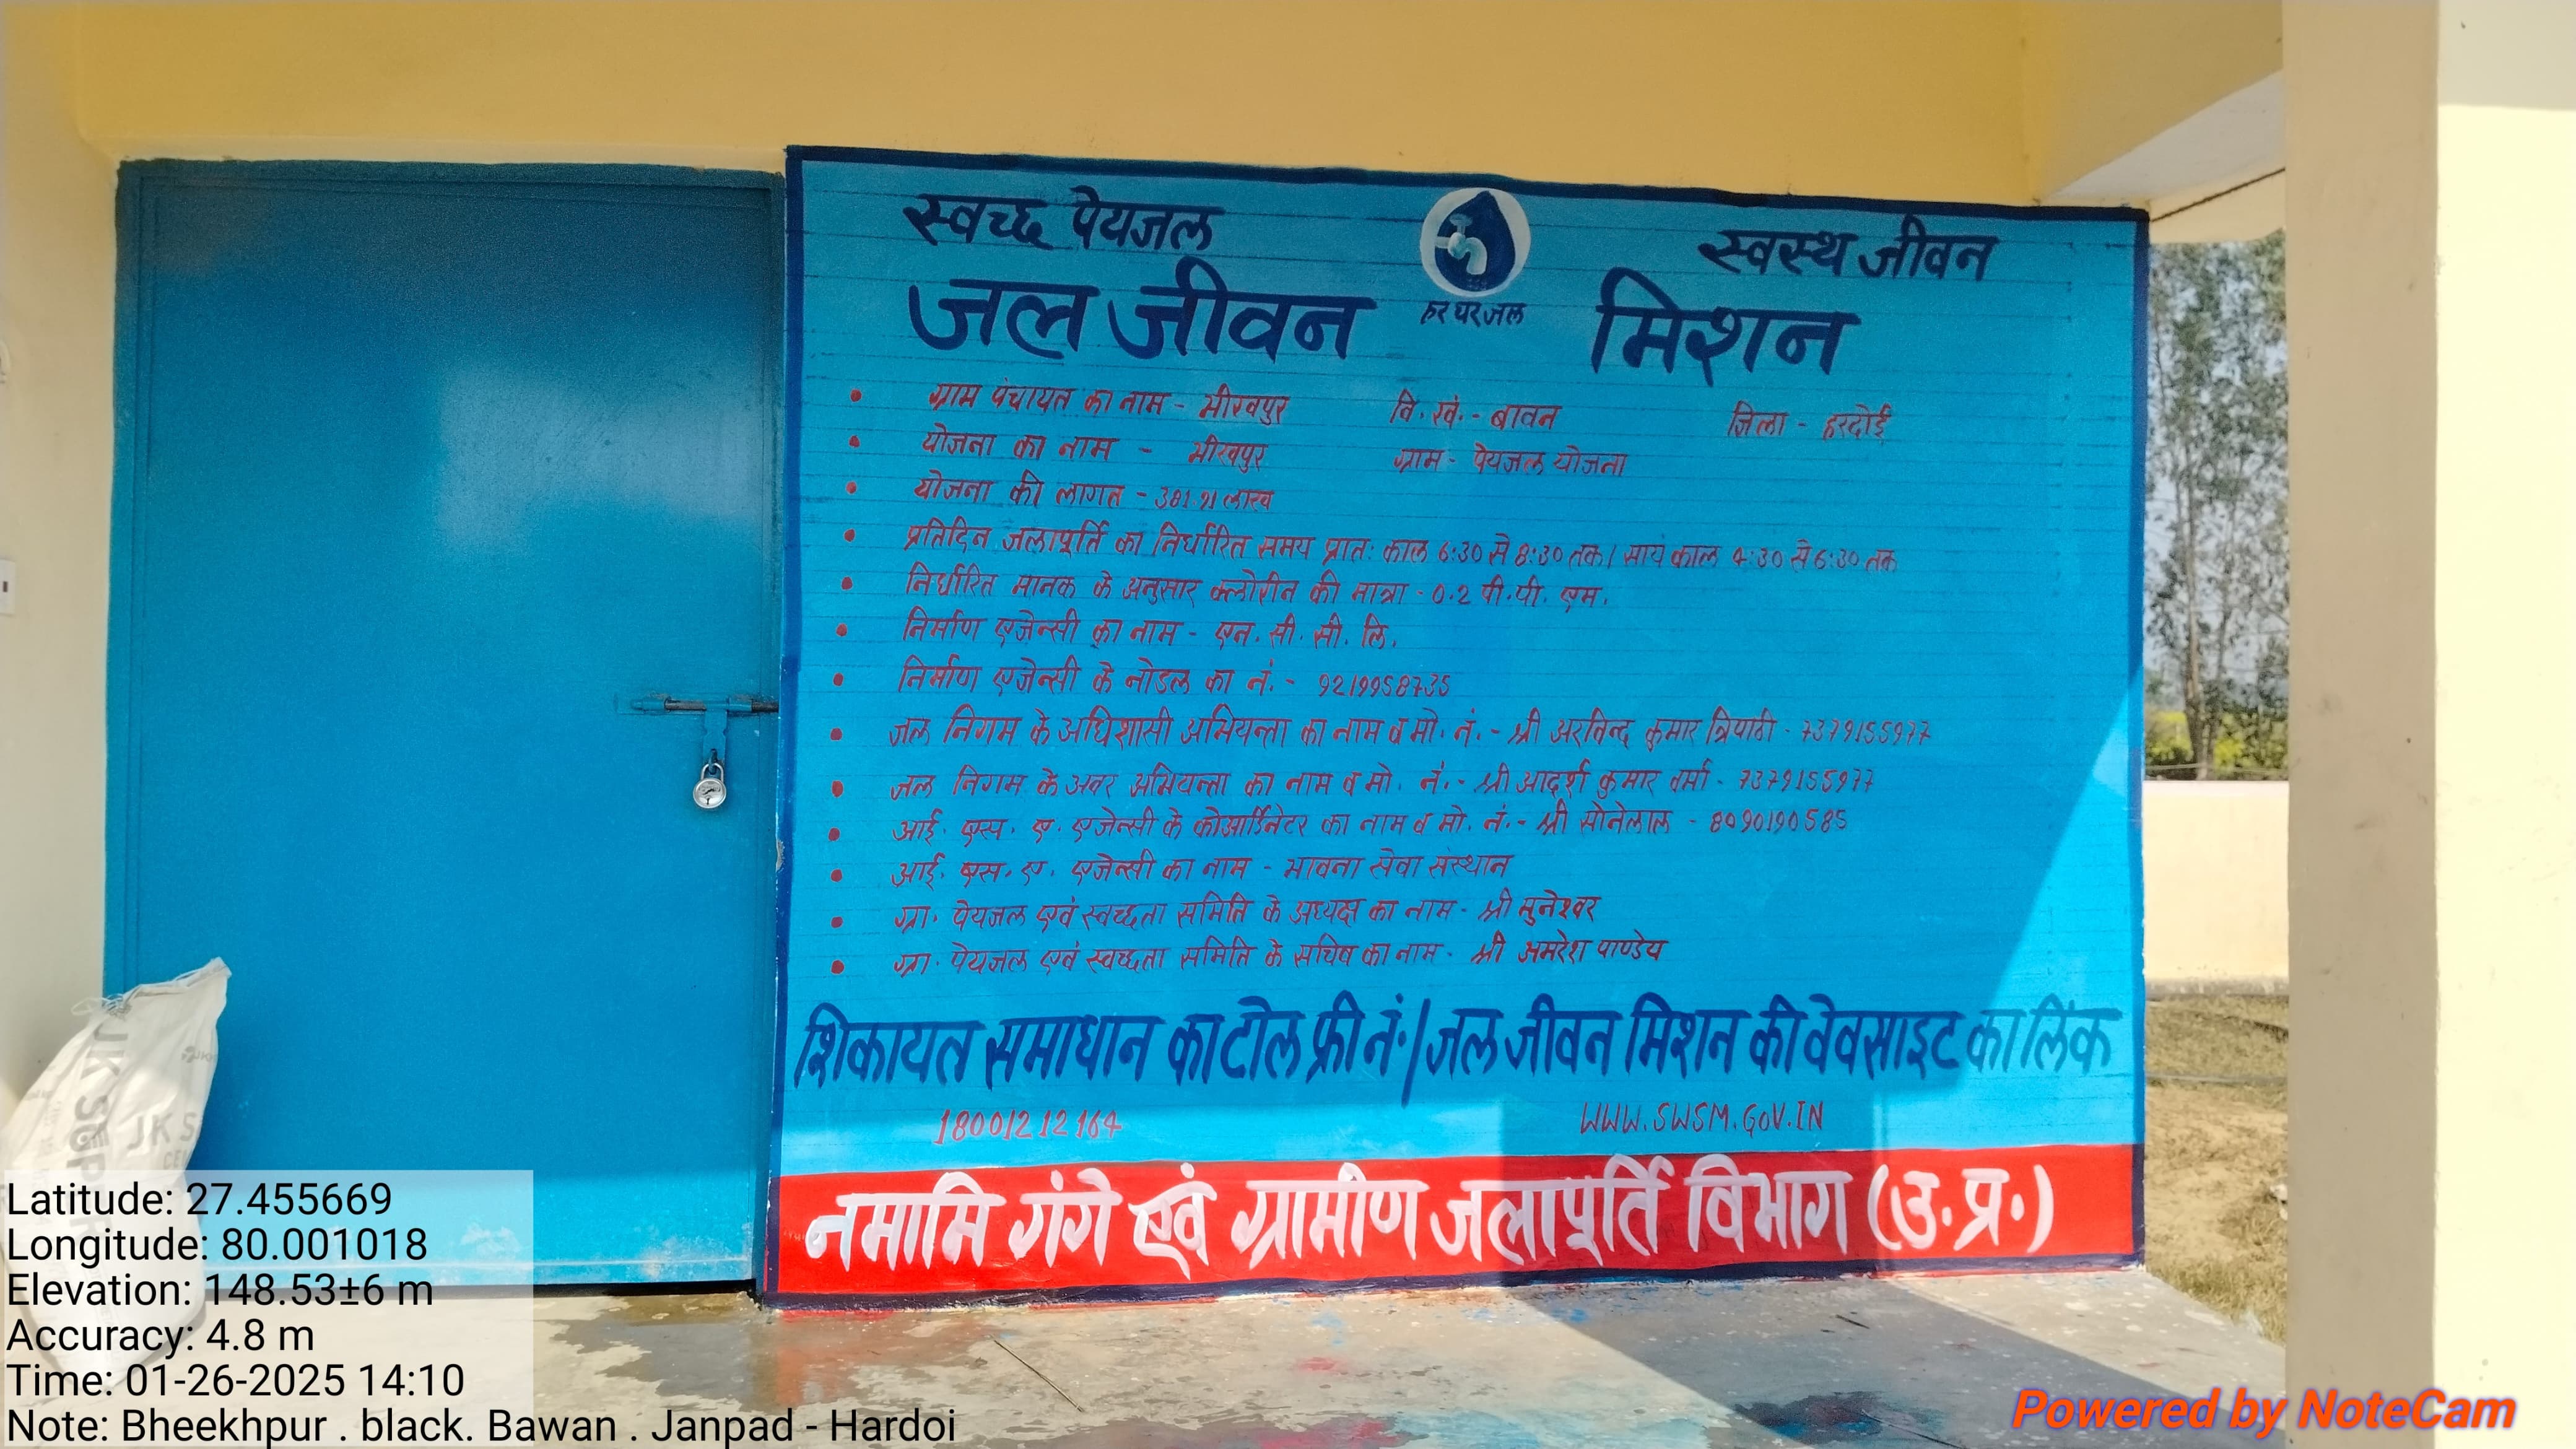 स्वच्छ पेयजल स्वस्थ जीवन
जल जीवन मिशन
हर घर जल
• ग्राम पंचायत का नाम - भीखपुर वि. खं. - बावन जिला - हरदोई
• योजना का नाम - भीखपुर ग्राम - पेयजल योजना
• योजना की लागत - 381.91 लाख
• प्रतिदिन जलापूर्ति का निर्धारित समय प्रातः काल 6:30 से 8:30 तक / सायं काल 4:30 से 6:30 तक
• निर्धारित मानक के अनुसार क्लोरीन की मात्रा - 0.2 पी.पी. एम.
• निर्माण एजेन्सी का नाम - एन. सी. सी. लि.
• निर्माण एजेन्सी के नोडल का नं. - 9219958735
• जल निगम के अधिशासी अभियन्ता का नाम व मो. नं. - श्री अरविन्द कुमार त्रिपाठी - 7379155977
• जल निगम के अवर अभियन्ता का नाम व मो. नं. - श्री आदर्श कुमार वर्मा - 7379155977
• आई. एस. ए. एजेन्सी के कोआर्डिनेटर का नाम व मो. नं. - श्री सोनेलाल - 8090190585
• आई. एस. ए. एजेन्सी का नाम - भावना सेवा संस्थान
• ग्रा. पेयजल एवं स्वच्छता समिति के अध्यक्ष का नाम - श्री मुनेश्वर
• ग्रा. पेयजल एवं स्वच्छता समिति के सचिव का नाम - श्री अमरेश पाण्डेय
शिकायत समाधान का टोल फ्री नं. / जल जीवन मिशन की वेवसाइट का लिंक
18001212164 WWW.SWSM.GOV.IN
नमामि गंगे एवं ग्रामीण जलापूर्ति विभाग (उ.प्र.)
JK SUPER
JK S
Latitude: 27.455669
Longitude: 80.001018
Elevation: 148.53±6 m
Accuracy: 4.8 m
Time: 01-26-2025 14:10
Note: Bheekhpur . black. Bawan . Janpad - Hardoi
Powered by NoteCam